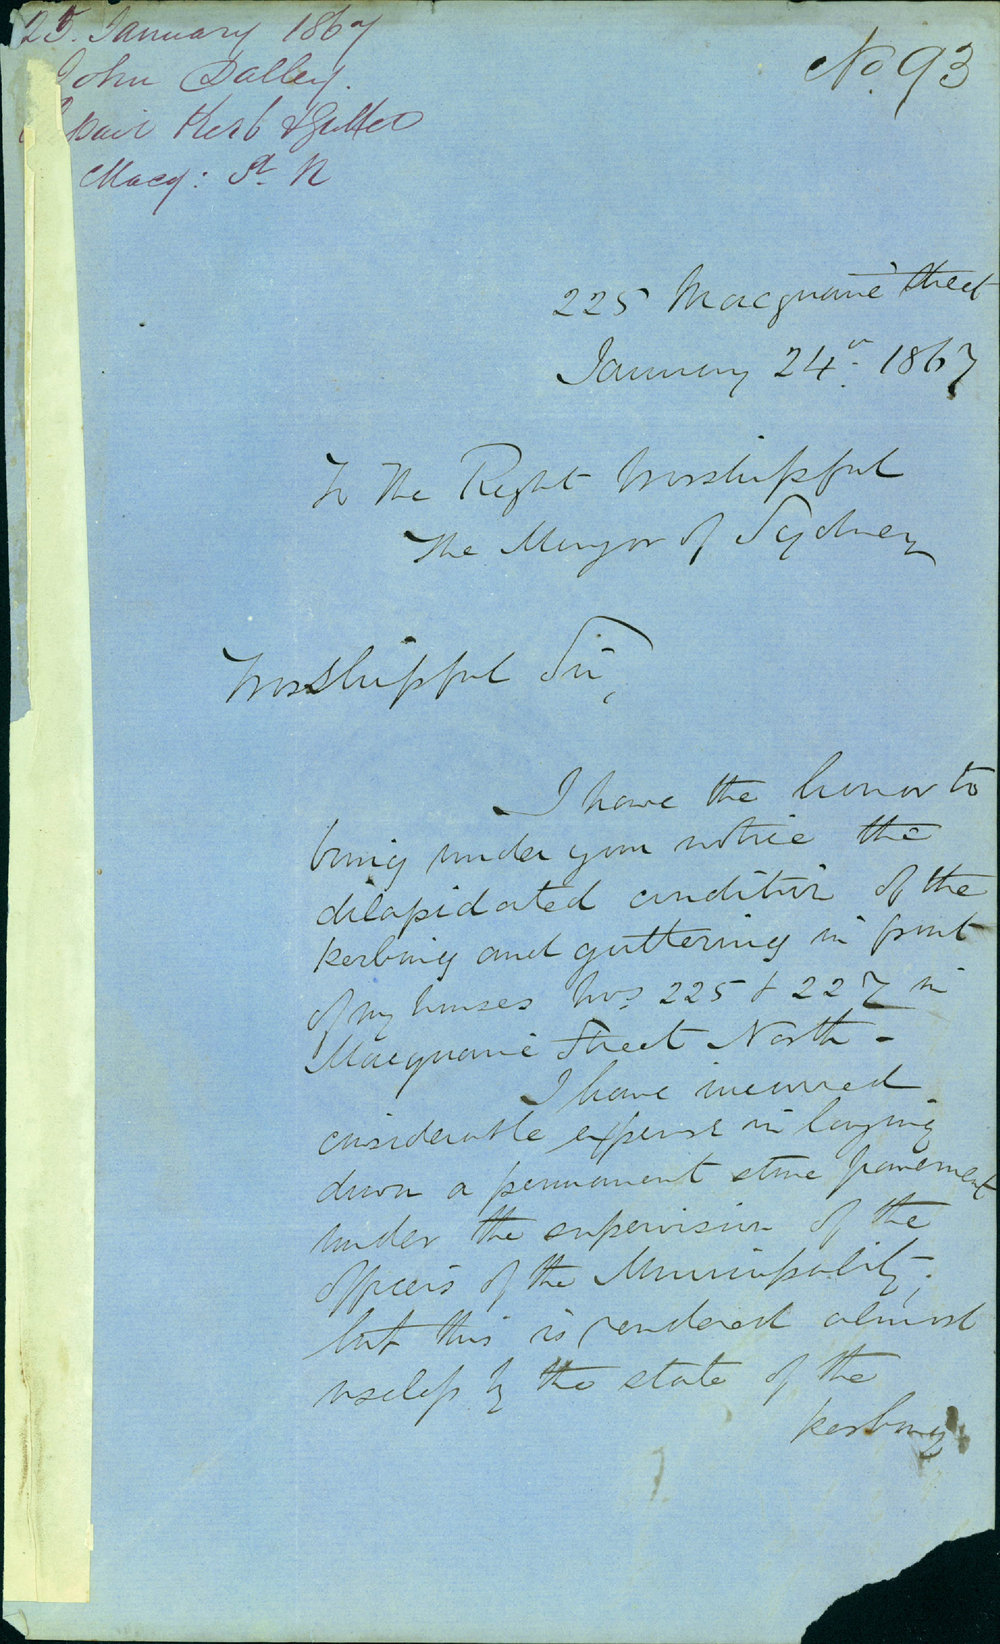 25 January 1867
John Dalley.
Repair Kerb & Gutter
Macq: St. N
No. 93
225 Macquarie Street
January 24th. 1867
To The Right Worshipful
The Mayor of Sydney
Worshipful Sir,
I have the honor to
bring under your notice the
dilapidated condition of the
kerbing and guttering in front
of my houses Nos 225 & 227 in
Macquarie Street North -
I have incurred
considerable expense in laying
down a permanent stone pavement
under the supervision of the
officers of the Municipality;
but this is rendered almost
useless by the state of the
kerbing